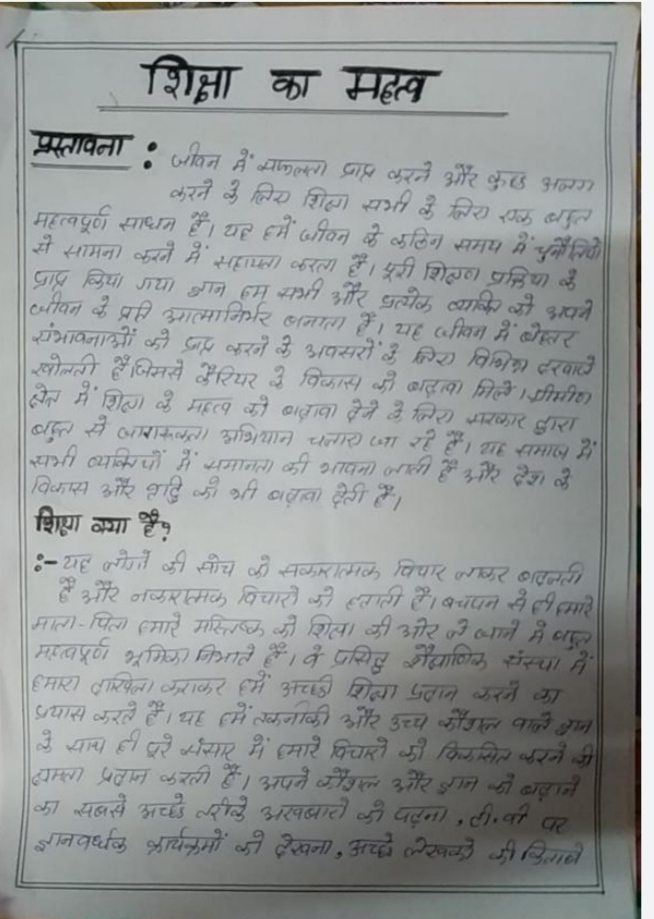 शिक्षा का महत्व
प्रस्तावना : जीवन में सफलता प्राप्त करने और कुछ अलग
करने के लिए शिक्षा सभी के लिए एक बहुत
महत्वपूर्ण साधन है। यह हमें जीवन के कठिन समय में चुनौतियों
से सामना करने में सहायता करता है। पूरी शिक्षण प्रक्रिया के
प्राप्त किया गया ज्ञान हम सभी और प्रत्येक व्यक्ति को अपने
जीवन के प्रति आत्मनिर्भर बनाता है। यह जीवन में बेहतर
संभावनाओं को प्राप्त करने के अवसरों के लिए विभिन्न दरवाजे
खोलती है जिससे कैरियर के विकास को बढ़ावा मिले। ग्रामीण
क्षेत्र में शिक्षा के महत्व को बढ़ावा देने के लिए सरकार द्वारा
बहुत से जागरूकता अभियान चलाए जा रहे है। यह समाज में
सभी व्यक्तियों में समानता की भावना लाती है और देश के
विकास और वृद्धि को भी बढ़ावा देती है।
शिक्षा क्या है?
:- यह लोगो की सोच को सकारात्मक विचार लाकर बदलती
है और नकारात्मक विचारो को हटाती है। बचपन से ही हमारे
माता-पिता हमारे मस्तिष्क को शिक्षा की ओर ले जाने मे बहुत
महत्वपूर्ण भूमिका निभाते है। वे प्रसिद्ध शैक्षणिक संस्था में
हमारा दाखिला कराकर हमें अच्छी शिक्षा प्रदान करने का
प्रयास करते है। यह हमें तकनीकी और उच्च कौशल वाले ज्ञान
के साथ ही पूरे संसार में हमारे विचारो को विकसित करने की
क्षमता प्रदान करती है। अपने कौशल और ज्ञान को बढ़ाने
का सबसे अच्छे तरीके अखबारो को पढ़ना, टी.वी पर
ज्ञानवर्धक कार्यक्रमों को देखना, अच्छे लेखको की किताबे